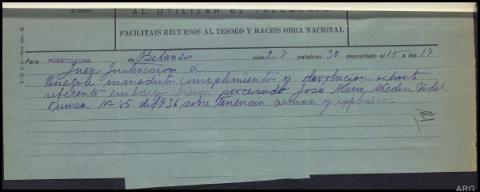 AL UTILIZAR EL TELÉGRAFO
FACILITAIS RECURSOS AL TESORO Y HACEIS OBRA NACIONAL
Para PUENTEDEUME de Betanzos núm. 27 palabras 30 depositado el 15 a las 17
Juez Instrucción a
Ruégole inmediato cumplimiento y devolución exhorto
referente embargo bienes procesado José María Vidal
Causa Nº 45 de 1936 sobre tenencia armas y explosivos
ARG